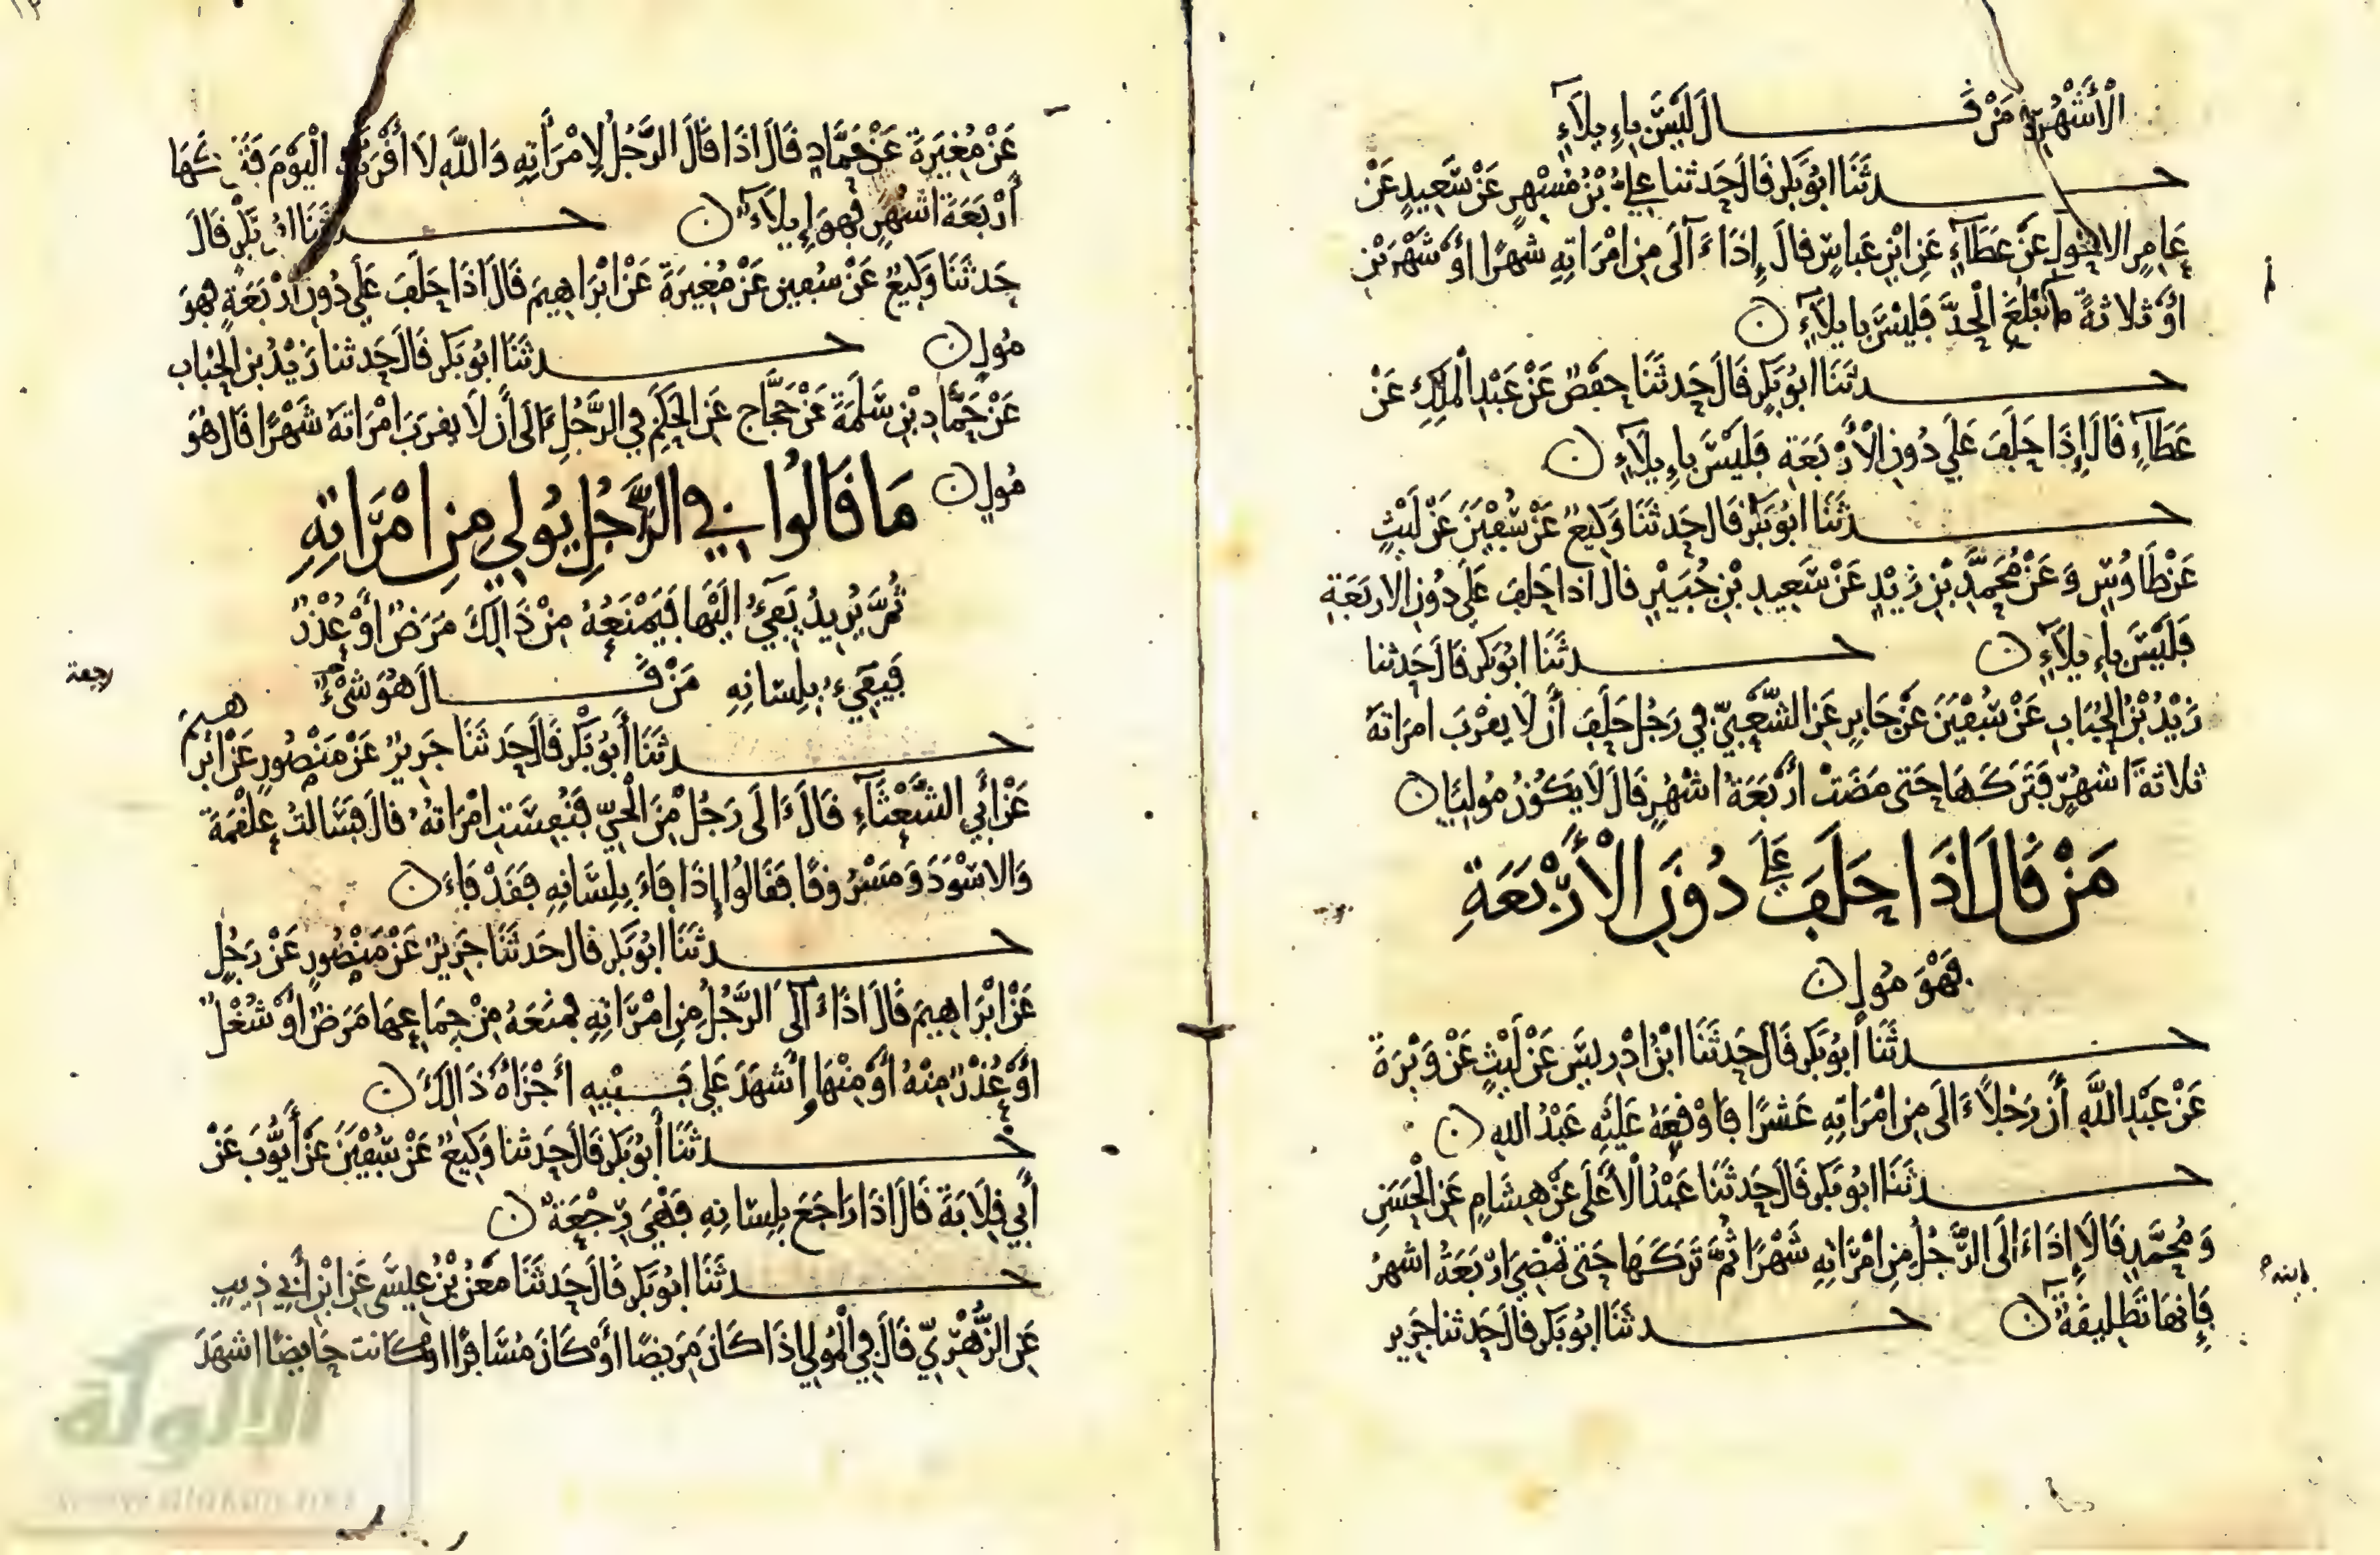 الْأَشْهُرِ مَنْ قَالَ لَيْسَ بِإِيلَاءٍ
حدثَنَا ابُوبَكر قَالَ حَدثنا عَلِىُّ بْنُ مُسْهِرٍ عَنْ سَعِيدٍ عَنْ
عَامِرٍ الاحْوَلِ عَنْ عَطَآءٍ عَنِ ابْنِ عَباسٍ قالَ إِذَا ءَالَى مِنِ امْرَاتِهِ شَهْرًا أَوْ شَهْرَيْنِ
أَوْ ثَلاثةً مَا لَمْ تَبْلُغِ الْحَدَّ فَلَيْسَ بِايلَآءٍ ن
حدثَنَا ابُوبَكرٍ قَالَ حَدثَنَا حَفْصٌ عَنْ عَبْدِ الْمَلِكِ عَنْ
عَطَآءٍ قَالَ إِذَا حَلَفَ عَلَى دُونِ الْأَرْبَعَةِ فَلَيْسَ بِإِيلَآءٍ ن
حدثَنَا ابُوبَكرٍ قَالَ حَدثَنَا وَكِيعٌ عَنْ سُفْيَنَ عَنْ لَيْثٍ
عَنْ طَاوُسٍ وَعَنْ مُحَمَّدِ بْنِ زَيْدٍ عَنْ سَعِيدِ بْنِ جُبَيْرٍ قالَ اذا حَلَفَ عَلَى دُونِ الاربَعَةِ
فَلَيْسَ بِإِيلَآءٍ ن حدثَنَا ابُوبَكر قَالَ حَدثنا
زَيْدُ بْنُ الْحُبَابِ عَنْ سُفْيَنَ عَنْ جَابِرٍ عَنِ الشَّعْبِيّ فِي رَجُلٍ حَلَفَ أَنْ لَا يَقْرَبَ امرَاتهُ
ثلاثةَ اشْهُرٍ فَتَرَكَهَا حَتى مَضَتْ أَرْبَعَةُ اشْهُرٍ قَالَ لَا يَكُونُ مُولِيًا ن
مَنْ قَالَ اذَا حَلَفَ عَلَى دُونِ الْأَرْبَعَةِ
فَهْوَ مُولٍ ن
حدثَنَا أَبُوبَكر قَالَ حَدثَنَا ابْنُ ادْرِيسَ عَنْ لَيْثٍ عَنْ وَبْرَةَ
عَنْ عَبْدِ اللَّهِ أَنَّ رَجُلًا ءَالَى مِنِ امْرَاتِهِ عَشْرًا فَاوْقَعَهُ عَلَيْهِ عَبْدُ اللهِ ن
حدثَنَا ابُوبَكر قَالَ حَدثَنَا عَبْدُ الْأَعْلَى عَنْ هِشَامٍ عَنِ الْحَسَنِ
وَمُحَمَّدٍ قَالَا إِذَا ءَالَى الرَّجُلُ مِنِ امْرَاتِهِ شَهْرًا ثُمَّ تَرَكَهَا حَتى تَمْضِيَ ارْبَعَةُ اشهُرٍ
فَإِنهَا تَطْلِيقَةٌ ن حدثَنَا ابُوبَكر قَالَ حَدثنا جَرِير
عَنْ مُغِيرَةَ عَنْ حَمَّادٍ قَالَ اذَا قَالَ الرَّجُلُ لِامْرَأَتِهِ وَاللَّهِ لَا أَقْرَبُكِ الْيَوْمَ فَتَرَكَهَا
أَرْبَعَةَ اشْهُرٍ فَهوَ إِيلَآءٌ ن حدثَنَا ابُوبَكْرٍ قَالَ
حَدثَنَا وَكِيعٌ عَنْ سُفيَن عَنْ مُغِيرَةَ عَنْ ابْرَاهِيمَ قَالَ اذَا حَلَفَ عَلَى دُونِ ارْبَعَةٍ فَهوَ
مُولٍ ن حدثَنَا ابُوبَكر قَالَ حَدثنا زَيْدُ بن الحُبَاب
عَنْ حَمَّادِ بْنِ سَلَمَةَ عَنْ حَجَّاجٍ عَنِ الحَكَمِ فِي الرَّجُلِ ءَالَى أَنْ لَا يَقرَبَ امْرَاتهُ شَهْرًا قَال هُوَ
مُولٍ ن مَا قَالُوا فِي الرَّجُلِ يُولِي مِنِ امْرَاتِهِ
ثُمَّ يُرِيدُ يَفِيءُ الَيْهَا فَيَمْنَعُهُ مِنْ ذَالِكَ مَرَضٌ أَوْ عُذْرٌ
فَيَفِيءُ بِلِسَانِهِ مَنْ قَالَ هُوَ فَيْءٌ
رجعة
حدثَنَا أَبُوبَكر قَالَ حَدثَنَا جَرِيرٌ عَنْ مَنْصُورٍ عَنْ ابْرَاهِيمَ
عَنْ أَبِي الشَّعْثَآءِ قَالَ ءَالَى رَجُلٌ مِنَ الْحَيِّ فَنُفِسَتِ امْرَاتهُ قالَ فَسَالتُ عَلْقَمَةَ
وَالاسْوَدَ وَمَسْرُوقًا فَقَالُوا إِذَا فَاءَ بِلِسَانِهِ فَقَدْ فَاءَ ن
حدثَنَا ابُوبَكر قَال حَدثَنَا جَرِيرٌ عَنْ مَنْصُورٍ عَنْ رَجُلٍ
عَنْ ابْرَاهِيمَ قَالَ اذَا ءَالَى الرَّجُلُ مِنِ امْرَاتِهِ فَمَنَعَهُ مِنْ جِمَاعِهَا مَرَضٌ اوْ شُغْلٌ
أَوْ عُذْرٌ مِنْهُ أَوْ مِنْهَا وأَشهَدَ عَلَى فَيْئِهِ أَجْزَاهُ ذَالِكَ ن
حدثَنَا أَبُوبَكر قَالَ حَدثنا وَكِيعٌ عَنْ سُفْيَنَ عَنْ أَيُّوبَ عَنْ
أَبِي قِلَابَةَ قَالَ اذَا رَاجَعَ بِلِسَانِهِ فَهْيَ رِجْعَةٌ ن
حدثَنَا ابُوبَكر قَالَ حَدثَنَا مَعْنُ بْنُ عِيسَى عَنِ ابْنِ أَبِي ذِيبٍ
عَنِ الزُّهْرِيِّ قَالَ فِي الْمُولِي إِذَا كَانَ مَرِيضًا أَوْ كَانَ مُسَافِرًا اوْ كَانت حَايِضًا اشهَدَ
الألوكة
www.alukah.net